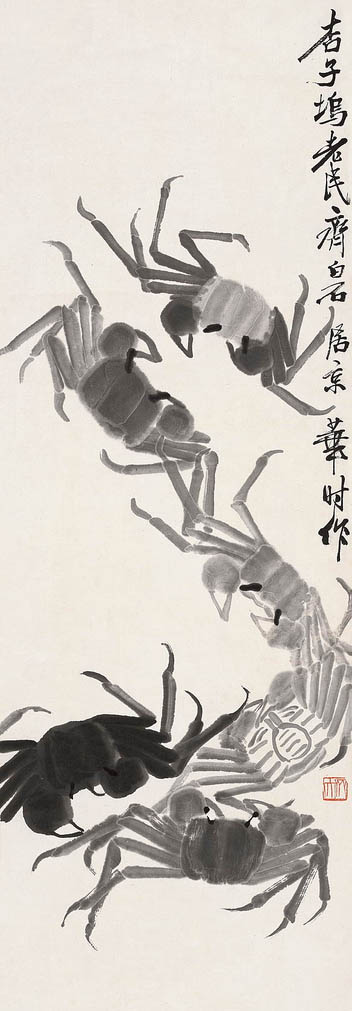 杏子塢老民齊白石居京華时作